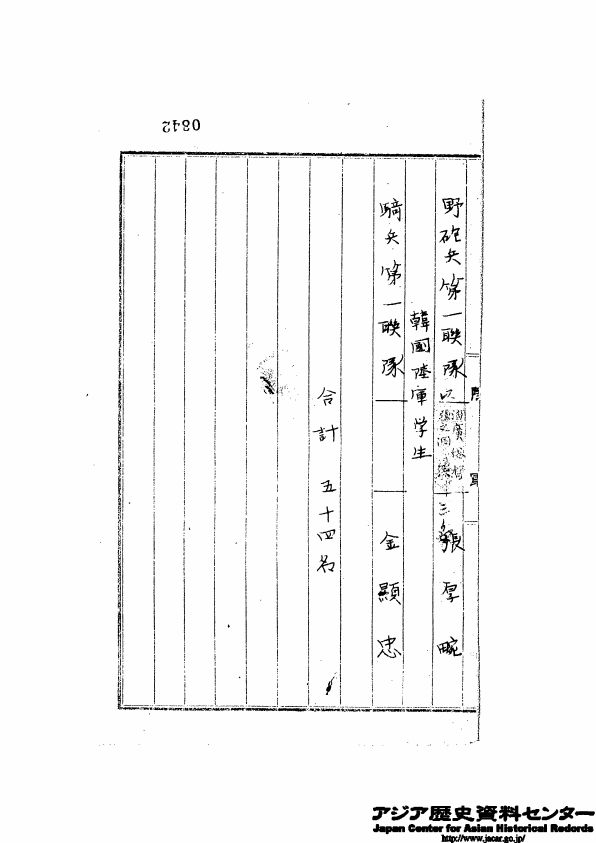 0842
野砲兵第一聯隊
張厚畹
韓國陸軍学生
騎兵第一聯隊 金顯忠
合計 五十四名
アジア歴史資料センター
Japan Center for Asian Historical Records
http://www.jacar.go.jp/